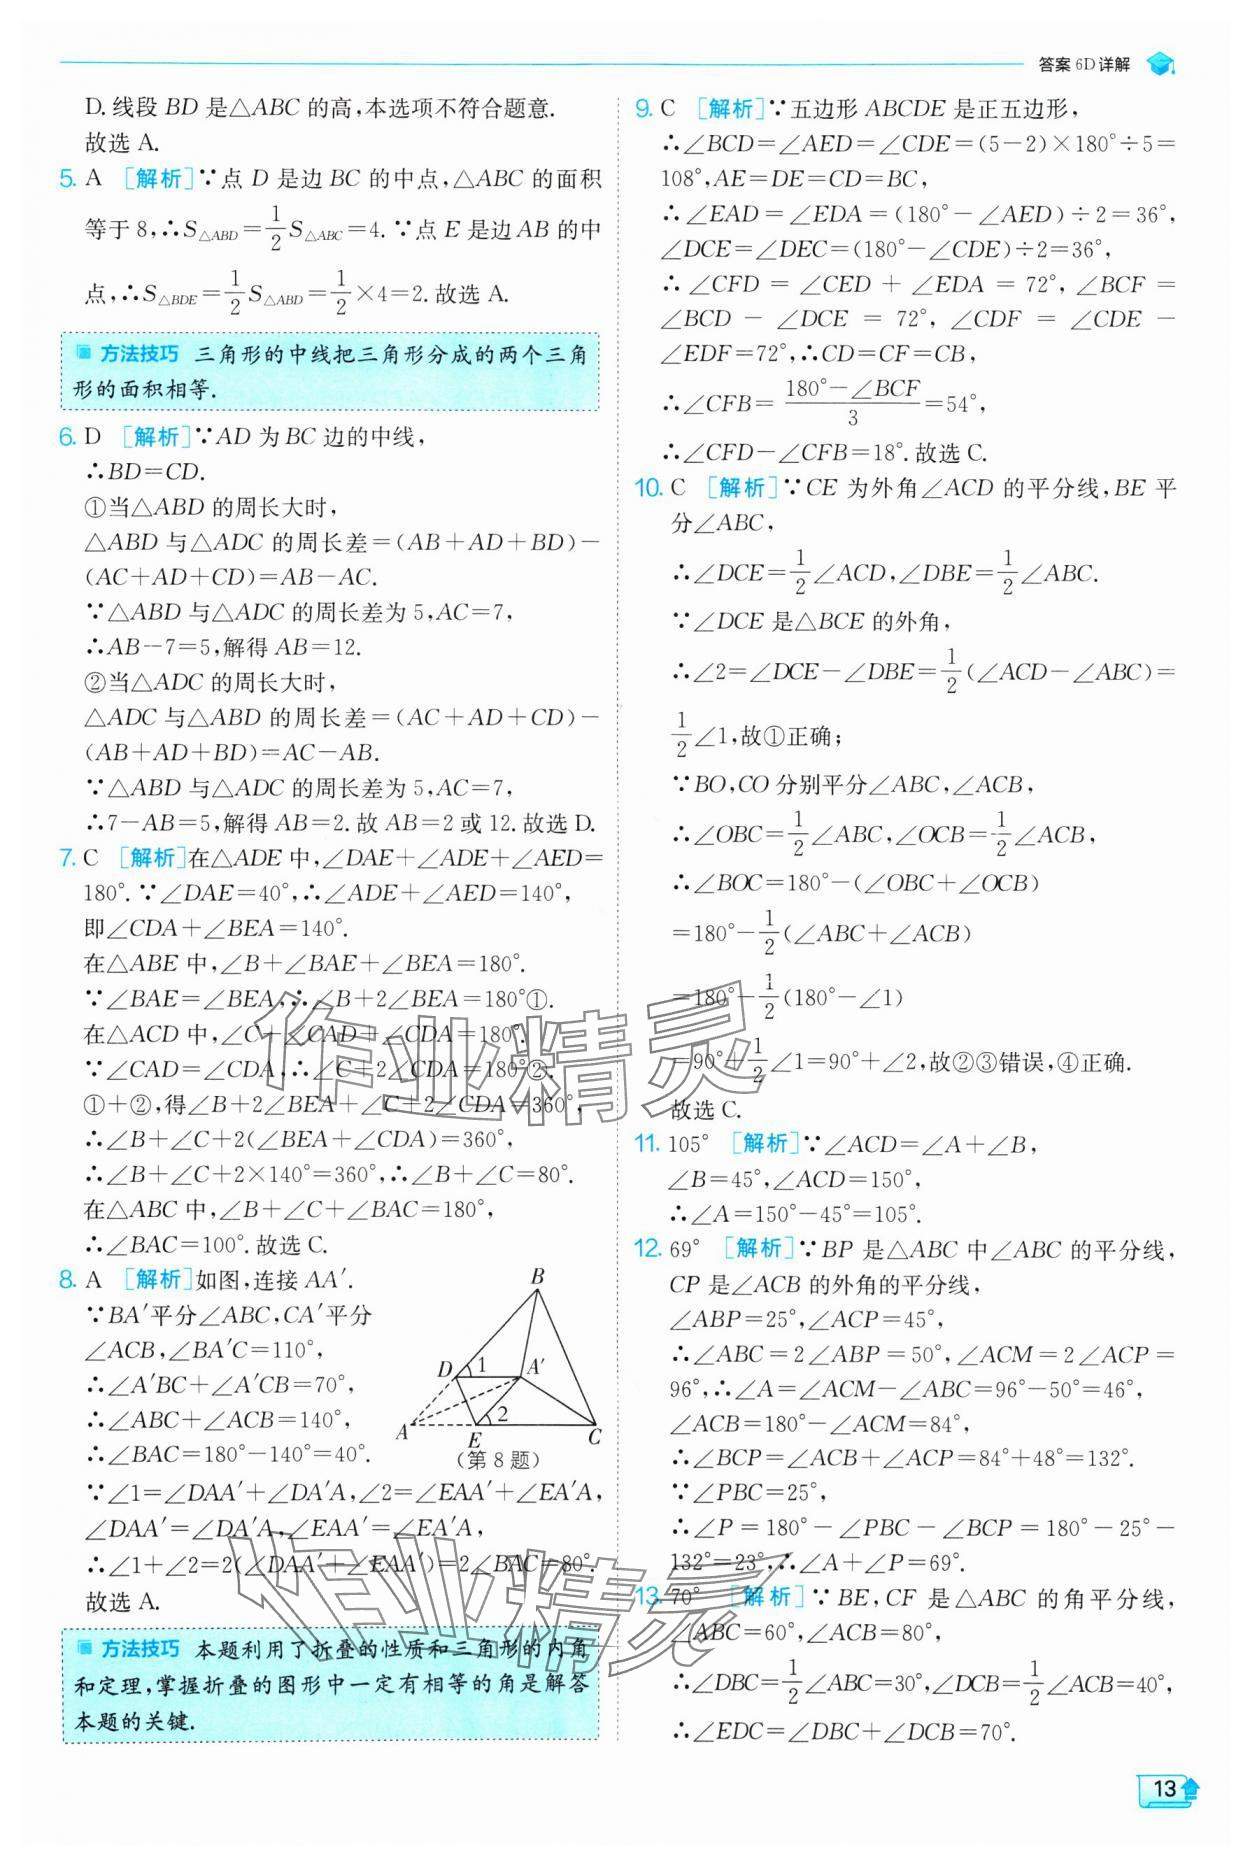 答案 6D 详解
D.线段 BD 是△ABC 的高,本选项不符合题意.
故选 A.
5. A [解析]∵点 D 是边 BC 的中点,△ABC 的面积
等于 8,∴S△ABD=1/2 S△ABC=4.∵点 E 是边 AB 的中
点,∴S△BDE=1/2 S△ABD=1/2×4=2.故选 A.
方法技巧 三角形的中线把三角形分成的两个三角
形的面积相等.
6. D [解析]∵AD 为 BC 边的中线,
∴BD=CD.
①当△ABD 的周长大时,
△ABD 与△ADC 的周长差=(AB+AD+BD)-
(AC+AD+CD)=AB-AC.
∵△ABD 与△ADC 的周长差为 5,AC=7,
∴AB-7=5,解得 AB=12.
②当△ADC 的周长大时,
△ADC 与△ABD 的周长差=(AC+AD+CD)-
(AB+AD+BD)=AC-AB.
∵△ABD 与△ADC 的周长差为 5,AC=7,
∴7-AB=5,解得 AB=2.故 AB=2 或 12.故选 D.
7. C [解析]在△ADE 中,∠DAE+∠ADE+∠AED=
180°.∵∠DAE=40°,∴∠ADE+∠AED=140°,
即∠CDA+∠BEA=140°.
在△ABE 中,∠B+∠BAE+∠BEA=180°.
∵∠BAE=∠BEA,∴∠B+2∠BEA=180°①.
在△ACD 中,∠C+∠CAD+∠CDA=180°.
∵∠CAD=∠CDA,∴∠C+2∠CDA=180°②.
①+②,得∠B+2∠BEA+∠C+2∠CDA=360°,
∴∠B+∠C+2(∠BEA+∠CDA)=360°,
∴∠B+∠C+2×140°=360°,∴∠B+∠C=80°.
在△ABC 中,∠B+∠C+∠BAC=180°,
∴∠BAC=100°.故选 C.
8. A [解析]如图,连接 AA′.
∵BA′平分∠ABC,CA′平分
∠ACB,∠BA′C=110°,
∴∠A′BC+∠A′CB=70°,
∴∠ABC+∠ACB=140°,
∴∠BAC=180°-140°=40°.
B
D 1 A′
A E 2 C
(第 8 题)
∵∠1=∠DAA′+∠DA′A,∠2=∠EAA′+∠EA′A,
∠DAA′=∠DA′A,∠EAA′=∠EA′A,
∴∠1+∠2=2(∠DAA′+∠EAA′)=2∠BAC=80°.
故选 A.
方法技巧 本题利用了折叠的性质和三角形的内角
和定理,掌握折叠的图形中一定有相等的角是解答
本题的关键.
9. C [解析]∵五边形 ABCDE 是正五边形,
∴∠BCD=∠AED=∠CDE=(5-2)×180°÷5=
108°,AE=DE=CD=BC,
∴∠EAD=∠EDA=(180°-∠AED)÷2=36°,
∠DCE=∠DEC=(180°-∠CDE)÷2=36°,
∴∠CFD=∠CED+∠EDA=72°,∠BCF=
∠BCD-∠DCE=72°,∠CDF=∠CDE-
∠EDF=72°,∴CD=CF=CB,
∴∠CFB=(180°-∠BCF)/3=54°,
∴∠CFD-∠CFB=18°.故选 C.
10. C [解析]∵CE 为外角∠ACD 的平分线,BE 平
分∠ABC,
∴∠DCE=1/2∠ACD,∠DBE=1/2∠ABC.
∵∠DCE 是△BCE 的外角,
∴∠2=∠DCE-∠DBE=1/2(∠ACD-∠ABC)=
1/2∠1,故①正确;
∵BO,CO 分别平分∠ABC,∠ACB,
∴∠OBC=1/2∠ABC,∠OCB=1/2∠ACB,
∴∠BOC=180°-(∠OBC+∠OCB)
=180°-1/2(∠ABC+∠ACB)
=180°-1/2(180°-∠1)
=90°+1/2∠1=90°+∠2,故②③错误,④正确.
故选 C.
11. 105° [解析]∵∠ACD=∠A+∠B,
∠B=45°,∠ACD=150°,
∴∠A=150°-45°=105°.
12. 69° [解析]∵BP 是△ABC 中∠ABC 的平分线,
CP 是∠ACB 的外角的平分线,
∠ABP=25°,∠ACP=45°,
∴∠ABC=2∠ABP=50°,∠ACM=2∠ACP=
96°,∴∠A=∠ACM-∠ABC=96°-50°=46°,
∠ACB=180°-∠ACM=84°,
∴∠BCP=∠ACB+∠ACP=84°+48°=132°.
∵∠PBC=25°,
∴∠P=180°-∠PBC-∠BCP=180°-25°-
132°=23°,∴∠A+∠P=69°.
13. 70° [解析]∵BE,CF 是△ABC 的角平分线,
∠ABC=60°,∠ACB=80°,
∴∠DBC=1/2∠ABC=30°,∠DCB=1/2∠ACB=40°,
∴∠EDC=∠DBC+∠DCB=70°.
13
作业精灵
作业精灵